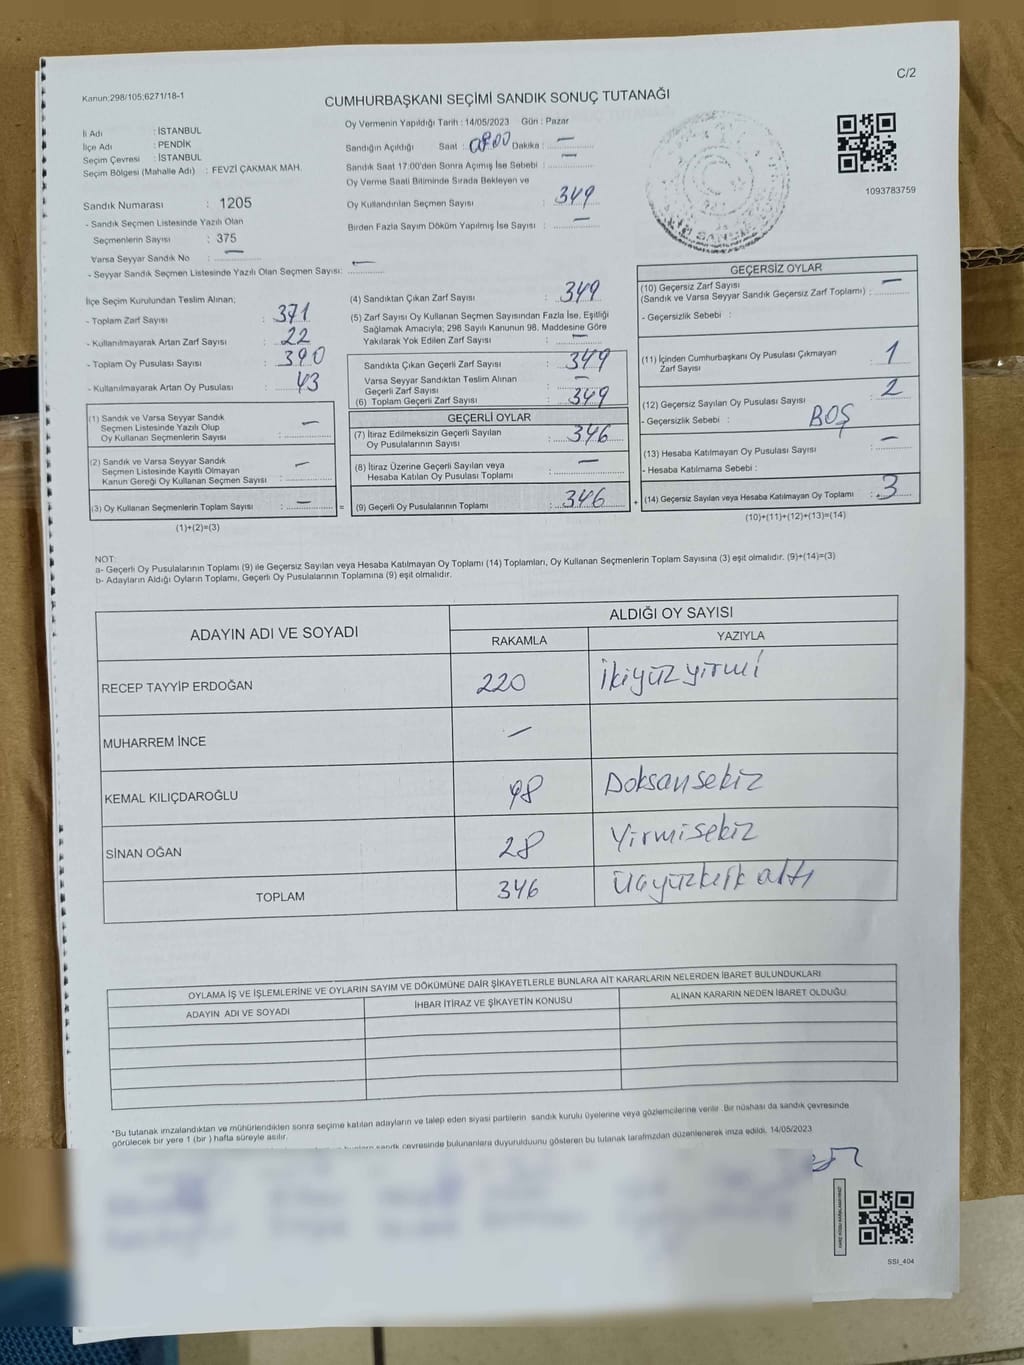 C/2
Kanun;298/105;6271/18-1
CUMHURBAŞKANI SEÇİMİ SANDIK SONUÇ TUTANAĞI
İl Adı : İSTANBUL
İlçe Adı : PENDİK
Seçim Çevresi : İSTANBUL
Seçim Bölgesi (Mahalle Adı) : FEVZİ ÇAKMAK MAH.
Sandık Numarası : 1205
- Sandık Seçmen Listesinde Yazılı Olan
Seçmenlerin Sayısı : 375
Varsa Seyyar Sandık No : —
- Seyyar Sandık Seçmen Listesinde Yazılı Olan Seçmen Sayısı: —
Oy Vermenin Yapıldığı Tarih : 14/05/2023 Gün : Pazar
Sandığın Açıldığı Saat : 08.00 Dakika : —
Sandık Saat 17:00'den Sonra Açımış İse Sebebi : —
Oy Verme Saati Bitiminde Sırada Bekleyen ve
Oy Kullandırılan Seçmen Sayısı : 349
Birden Fazla Sayım Döküm Yapılmış İse Sayısı : —
1093783759
İlçe Seçim Kurulundan Teslim Alınan;
- Toplam Zarf Sayısı : 371
- Kullanılmayarak Artan Zarf Sayısı : 22
- Toplam Oy Pusulası Sayısı : 390
- Kullanılmayarak Artan Oy Pusulası : 43
(1) Sandık ve Varsa Seyyar Sandık
Seçmen Listesinde Yazılı Olup
Oy Kullanan Seçmenlerin Sayısı : —
(2) Sandık ve Varsa Seyyar Sandık
Seçmen Listesinde Kayıtlı Olmayan
Kanun Gereği Oy Kullanan Seçmen Sayısı : —
(3) Oy Kullanan Seçmenlerin Toplam Sayısı : — =
(1)+(2)=(3)
(4) Sandıktan Çıkan Zarf Sayısı : 349
(5) Zarf Sayısı Oy Kullanan Seçmen Sayısından Fazla İse, Eşitliği
Sağlamak Amacıyla; 298 Sayılı Kanunun 98. Maddesine Göre
Yakılarak Yok Edilen Zarf Sayısı : —
Sandıkta Çıkan Geçerli Zarf Sayısı : 349
Varsa Seyyar Sandıktan Teslim Alınan
Geçerli Zarf Sayısı : —
(6) Toplam Geçerli Zarf Sayısı : 349
GEÇERLİ OYLAR
(7) İtiraz Edilmeksizin Geçerli Sayılan
Oy Pusulalarının Sayısı : 346
(8) İtiraz Üzerine Geçerli Sayılan veya
Hesaba Katılan Oy Pusulası Toplamı : —
(9) Geçerli Oy Pusulalarının Toplamı : 346 +
GEÇERSİZ OYLAR
(10) Geçersiz Zarf Sayısı
(Sandık ve Varsa Seyyar Sandık Geçersiz Zarf Toplamı) : —
- Geçersizlik Sebebi :
(11) İçinden Cumhurbaşkanı Oy Pusulası Çıkmayan
Zarf Sayısı : 1
(12) Geçersiz Sayılan Oy Pusulası Sayısı : 2
- Geçersizlik Sebebi : BOŞ
(13) Hesaba Katılmayan Oy Pusulası Sayısı : —
- Hesaba Katılmama Sebebi :
(14) Geçersiz Sayılan veya Hesaba Katılmayan Oy Toplamı : 3
(10)+(11)+(12)+(13)=(14)
NOT:
a- Geçerli Oy Pusulalarının Toplamı (9) ile Geçersiz Sayılan veya Hesaba Katılmayan Oy Toplamı (14) Toplamları, Oy Kullanan Seçmenlerin Toplam Sayısına (3) eşit olmalıdır. (9)+(14)=(3)
b- Adayların Aldığı Oyların Toplamı, Geçerli Oy Pusulalarının Toplamına (9) eşit olmalıdır.
ADAYIN ADI VE SOYADI
ALDIĞI OY SAYISI
RAKAMLA YAZIYLA
RECEP TAYYİP ERDOĞAN 220 İkiyüzyirmi
MUHARREM İNCE —
KEMAL KILIÇDAROĞLU 98 Doksansekiz
SİNAN OĞAN 28 Yirmisekiz
TOPLAM 346 Üçyüzkırk altı
OYLAMA İŞ VE İŞLEMLERİNE VE OYLARIN SAYIM VE DÖKÜMÜNE DAİR ŞİKAYETLERLE BUNLARA AİT KARARLARIN NELERDEN İBARET BULUNDUKLARI
ADAYIN ADI VE SOYADI İHBAR İTİRAZ VE ŞİKAYETİN KONUSU ALINAN KARARIN NEDEN İBARET OLDUĞU
*Bu tutanak imzalandıktan ve mühürlendikten sonra seçime katılan adayların ve talep eden siyasi partilerin sandık kurulu üyelerine veya gözlemcilerine verilir. Bir nüshası da sandık çevresinde
görülecek bir yere 1 (bir ) hafta süreyle asılır.
sandık çevresinde bulunanlara duyurulduunu gösteren bu tutanak tarafımızdan düzenlenerek imza edildi. 14/05/2023
SSI_404